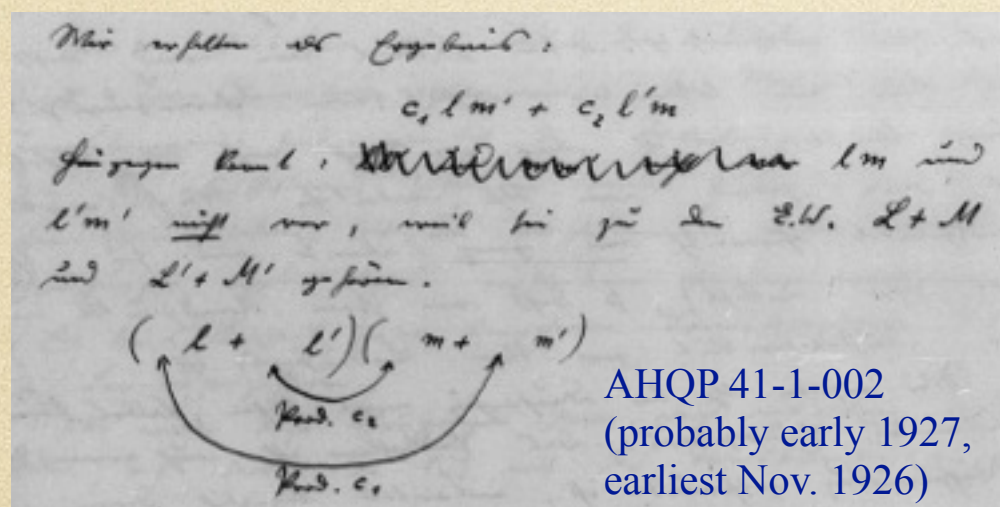 Wir erhalten als Ergebnis:
c₁ l m' + c₂ l'm
hingegen kommt: lm und
l'm' nicht vor, weil sie zu den E.W. L + M
und L' + M' gehören.
( l + l')( m + m')
Prod. c₂
Prod. c₁
AHQP 41-1-002
(probably early 1927,
earliest Nov. 1926)